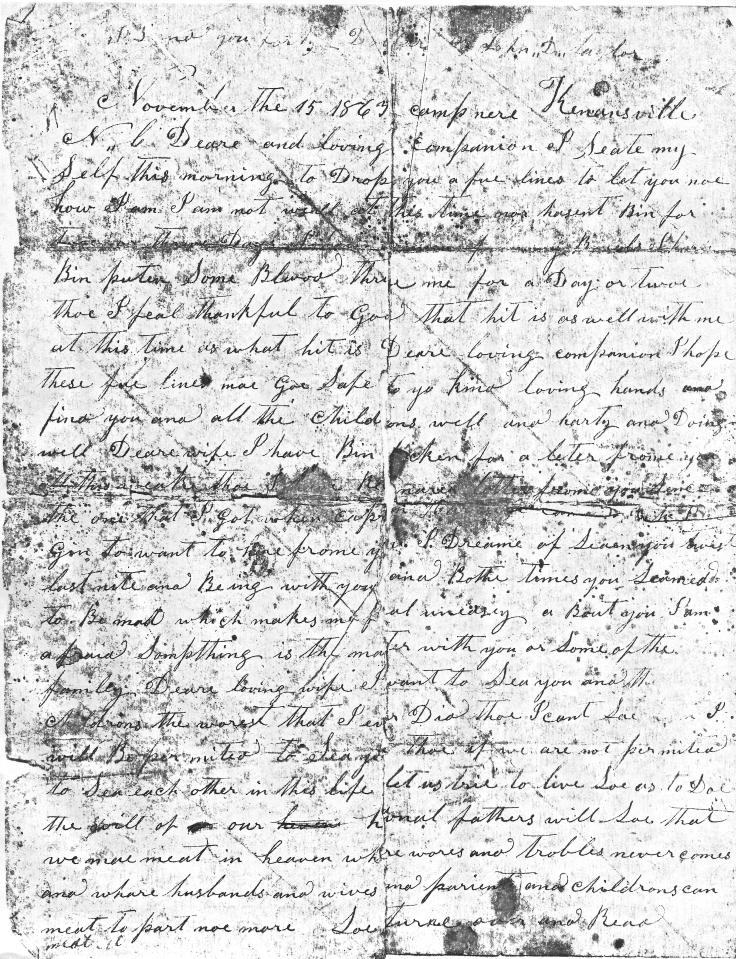 you John D. Taylor
November the 15 1863 camp nere Kenansville
N. C. Deare and loving companion I Seate my
Self this morning to Drop you a fue lines to let you noe
how I am I am not well at this time nor hasent Bin for
Bin puten Some Blwoo threw me for a Day or twoe
thoe I feal thankful to God that hit is as well with me
at this time as what hit is Deare loving companion I hope
these fue lines mae Goe Safe to yo kind loving hands and
find you and all the Childrons well and harty and Doing
well Deare wife I have Bin for a leter frome yo
this weake thoe I leter frome you Since
the one that I Got
Gin to want to heare frome you I Dreame of Seaen you twist
last nite and Being with you and Bothe times you Seamed
to Be mad which makes me feal uneasey a Bout you I am
afraid Sompthing is the mater with you or Some of the
famley Deare loving wife I want to Sea you and th
Childrons the worest that I ever Did thoe I cant Soe I
will Be permited to Sea you thoe if we are not permited
to Sea each other in this life let us trie to live Soe as to Doe
the will of our heaven hvenal fathers will Soe that
we mae meat in heaven whare wores and trobles never comes
and whare husbands and wives and parients and childrons can
meat to part noe more Soe turne over and Read
meat